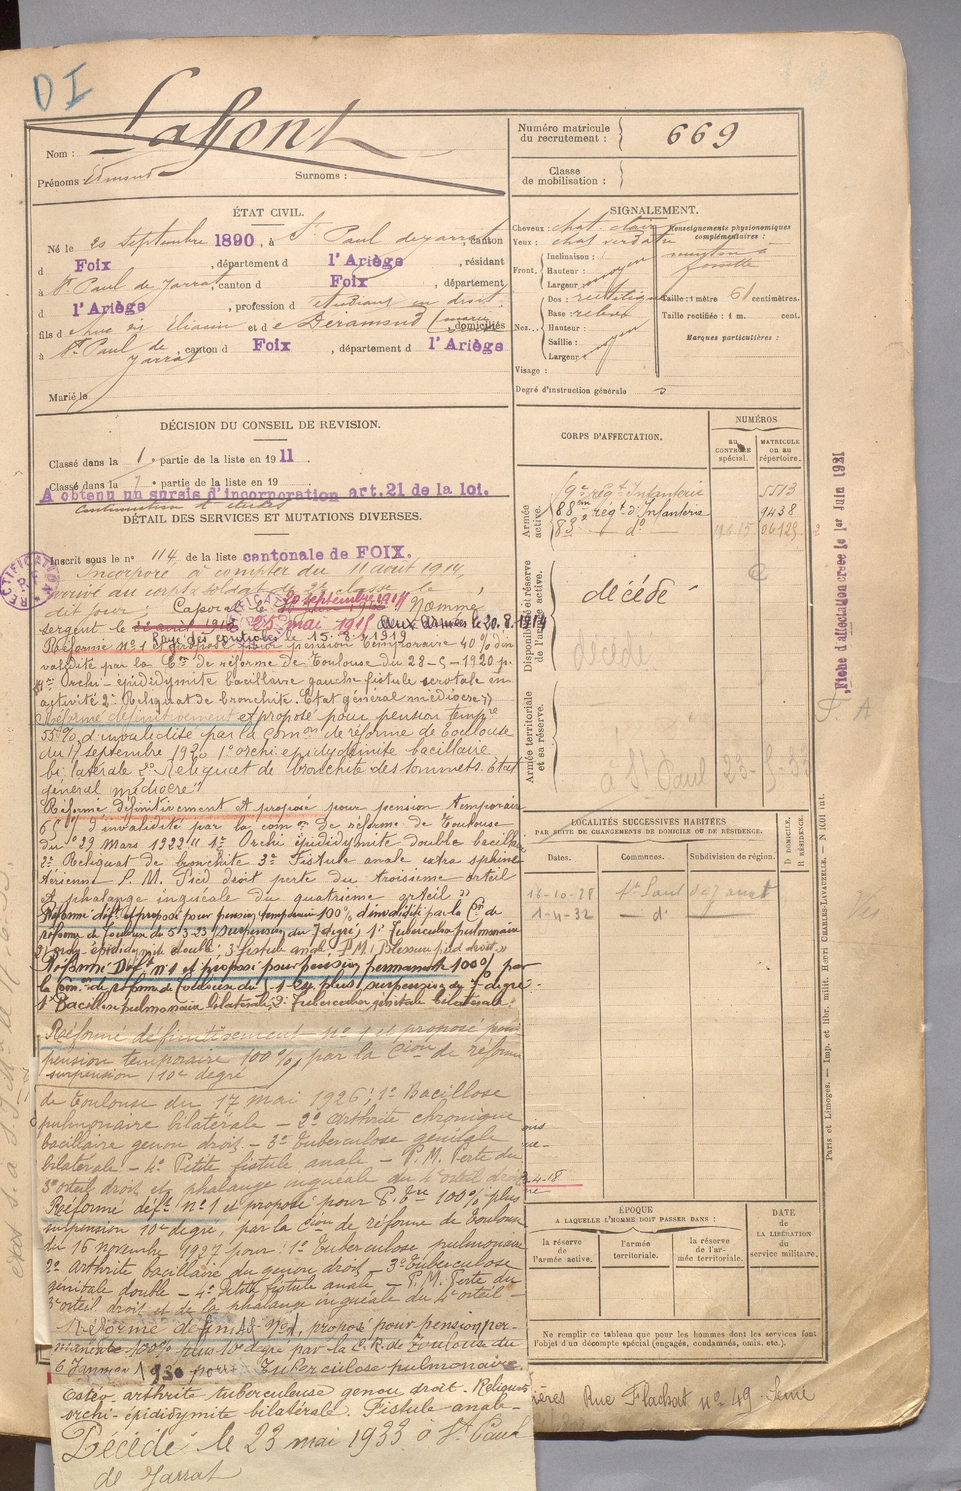 DI
Nom : Lafont
Prénoms Edmond Surnoms :
Numéro matricule du recrutement : 669
Classe de mobilisation :
ÉTAT CIVIL.
Né le 20 septembre 1890, à St Paul de Jarrat, canton
d Foix, département d l'Ariège, résidant
à St Paul de Jarrat, canton d Foix, département
d l'Ariège, profession d étudiant en droit
fils d et d , domiciliés
à St Paul de Jarrat, canton d Foix, département d l'Ariège
Marié le
SIGNALEMENT.
Cheveux : chat. clair
Yeux : chat verdâtre
Front, Inclinaison :
Hauteur : moyen
Largeur :
Nez.. Dos : rectiligne
Base : relevé
Hauteur :
Saillie : moyen
Largeur :
Visage :
Renseignements physionomiques complémentaires :
menton à fossette
Taille : 1 mètre 61 centimètres.
Taille rectifiée : 1 m. cent.
Marques particulières :
Degré d'instruction générale 3
DÉCISION DU CONSEIL DE REVISION.
Classé dans la 1e partie de la liste en 1911.
Classé dans la partie de la liste en 19
A obtenu un sursis d'incorporation art. 21 de la loi.
DÉTAIL DES SERVICES ET MUTATIONS DIVERSES.
Inscrit sous le no 114 de la liste cantonale de FOIX.
Incorporé à compter du 11 août 1914,
arrivé au corps & soldat de 2e classe le
dit jour. Caporal le 20 septembre 1914 Nommé
sergent le 25 mai 1915 Aux Armées le 20.8.1914
Rayé des contrôles le 15.8.1919
Réformé no 1 et proposé pour pension temporaire 40 % d'in
validité par la Con de réforme de Toulouse du 28-5-1920 p.
1o Orchi-épididymite bacillaire gauche fistule scrotale en
activité 2o Reliquat de bronchite. Etat général médiocre »
Réformé définitivement et proposé pour pension tempre
55 % d'invalidité par la Comon de réforme de Toulouse
du 17 septembre 1920 1o orchi epidydimite bacillaire
bi latérale 2o Reliquat de bronchite des sommets. Etat
général médiocre"
Réformé définitivement et proposé pour pension temporaire
65 % d'invalidité par la comon de réforme de Toulouse
du 29 mars 1922 " 1o Orchi épididymite double bacillaire
2o Reliquat de bronchite 3o Fistule anale extra sphinc
térienne - P. M. Pied droit perte du troisième orteil
et phalange inguéale du quatrième orteil »
Réformé déft et proposé pour pension temporaire 100 % d'invalidité par la Con de
réforme de Toulouse du 5-3-23 suspension du 7e degré, 1o Tuberculose pulmonaire
2o orchi-épididymite double ; 3o fistule anale P.M. Blessure pied droit »
Réformé Déft no 1 et proposé pour pension permanente 100 % par
1o Bacillose pulmonaire bilatérale, 2o Tuberculose génitale bilatérale.
Réformé définitivement no 1 et proposé pour
pension temporaire 100 %, par la Cion de réforme
suspension 10e degré
de Toulouse du 17 mai 1926 ; 1o Bacillose
pulmonaire bilatérale - 2o Arthrite chronique
bacillaire genou droit - 3o Tuberculose génitale
bilatérale - 4o Petite fistule anale - P.M. Perte du
3o orteil droit et phalange inguéale du 4e orteil droit
Réformé déft no 1 et proposé pour P. tre 100 % plus
suspension 10e degré, par la Cion de réforme de Toulouse
du 16 novembre 1927 pour : 1o Tuberculose pulmonaire
2o Arthrite bacillaire du genou droit - 3o Tuberculose
génitale double - 4o Petite fistule anale - P.M. Perte du
3e orteil droit et de la phalange inguéale du 4e orteil -
Réformé définitif No 1, proposé pour pension per-
manente 100 % plus 10e degré par la C.R. de Toulouse du
6 Janvier 1930 pour Tuberculose pulmonaire.
Ostéo-arthrite tuberculeuse genou droit. Reliquat
orchi-épididymite bilatérale. Fistule anale -
Décédé le 23 mai 1933 à St Paul
de Jarrat
CORPS D'AFFECTATION.
NUMÉROS
AU CONTROLE spécial.
MATRICULE ou au répertoire.
Armée active.
59e régt Infanterie 5513
88eme régt d'Infanterie 9438
83e do 06129
Disponibilité et réserve de l'armée active.
décédé
décédé
Armée territoriale et sa réserve.
à St Paul 23-5-33
LOCALITÉS SUCCESSIVES HABITÉES
PAR SUITE DE CHANGEMENTS DE DOMICILE OU DE RÉSIDENCE.
Dates. Communes. Subdivision de région. D. DOMICILE, R. RÉSIDENCE.
16-10-28 St Paul de Jarrat
1-4-32 - do -
ÉPOQUE
A LAQUELLE L'HOMME DOIT PASSER DANS :
la réserve de l'armée active.
l'armée territoriale.
la réserve de l'armée territoriale.
DATE DE LA LIBÉRATION du service militaire.
Ne remplir ce tableau que pour les hommes dont les services font
l'objet d'un décompte spécial (engagés, condamnés, omis, etc.).
Rue Flachat no 49 - Seine
Fiche d'affectation créée le 1er Juin 1921
Paris et Limoges. — Imp. et libr. milit. Henri CHARLES-LAVAUZELLE.